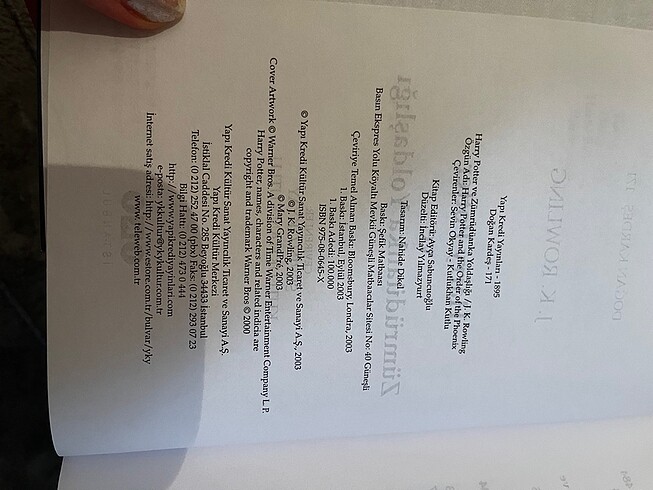 Yapı Kredi Yayınları - 1895
Doğan Kardeş - 171
Harry Potter ve Zümrüdüanka Yoldaşlığı / J. K. Rowling
Özgün Adı: Harry Potter and the Order of the Phoenix
Çevirenler: Sevin Okyay - Kutlukhan Kutlu
Kitap Editörü: Ayça Sabuncuoğlu
Düzelti: İncilay Yılmazyurt
Tasarım: Nahide Dikel
Baskı: Şefik Matbaası
Basın Ekspres Yolu Köyaltı Mevkii Güneşli Matbaacılar Sitesi No: 40 Güneşli
Çeviriye Temel Alınan Baskı: Bloomsbury, Londra, 2003
1. Baskı: İstanbul, Eylül 2003
1. Baskı Adedi: 100 000
ISBN 975-08-0645-X
© Yapı Kredi Kültür Sanat Yayıncılık Ticaret ve Sanayi A.Ş., 2003
© J. K. Rowling, 2003
© Mary GrandPré, 2003
Cover Artwork © Warner Bros. A division of Time Warner Entertainment Company L.P.
Harry Potter, names, characters and related indicia are
copyright and trademark Warner Bros © 2000
Yapı Kredi Kültür Sanat Yayıncılık Ticaret ve Sanayi A.Ş.
Yapı Kredi Kültür Merkezi
İstiklal Caddesi No. 285 Beyoğlu 34433 İstanbul
Telefon: (0 212) 252 47 00 (pbx) Faks: (0 212) 293 07 23
Bilgi Hattı: (0 212) 473 0 444
http://www.yapikrediyayinlari.com
e-posta: ykkultur@ykykultur.com.tr
İnternet satış adresi: http://www.estore.com.tr/bulvar/yky
www.teleweb.com.tr